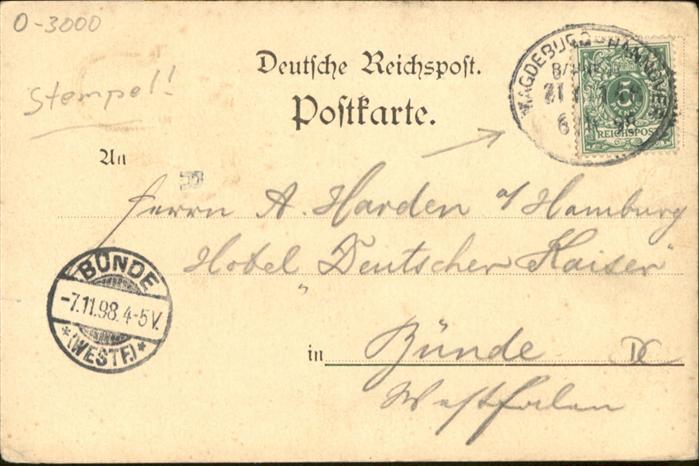 O-3000
Stempel!
Deutsche Reichspost.
Postkarte.
MAGDEBURG-HANNOVER
6 11 98
5
REICHSPOST
An
Herrn A. Harden a/Hamburg
Hotel "Deutscher Kaiser"
BÜNDE
-7.11.98.4-5V.
*(WESTF.)*
in Bünde
Westfalen